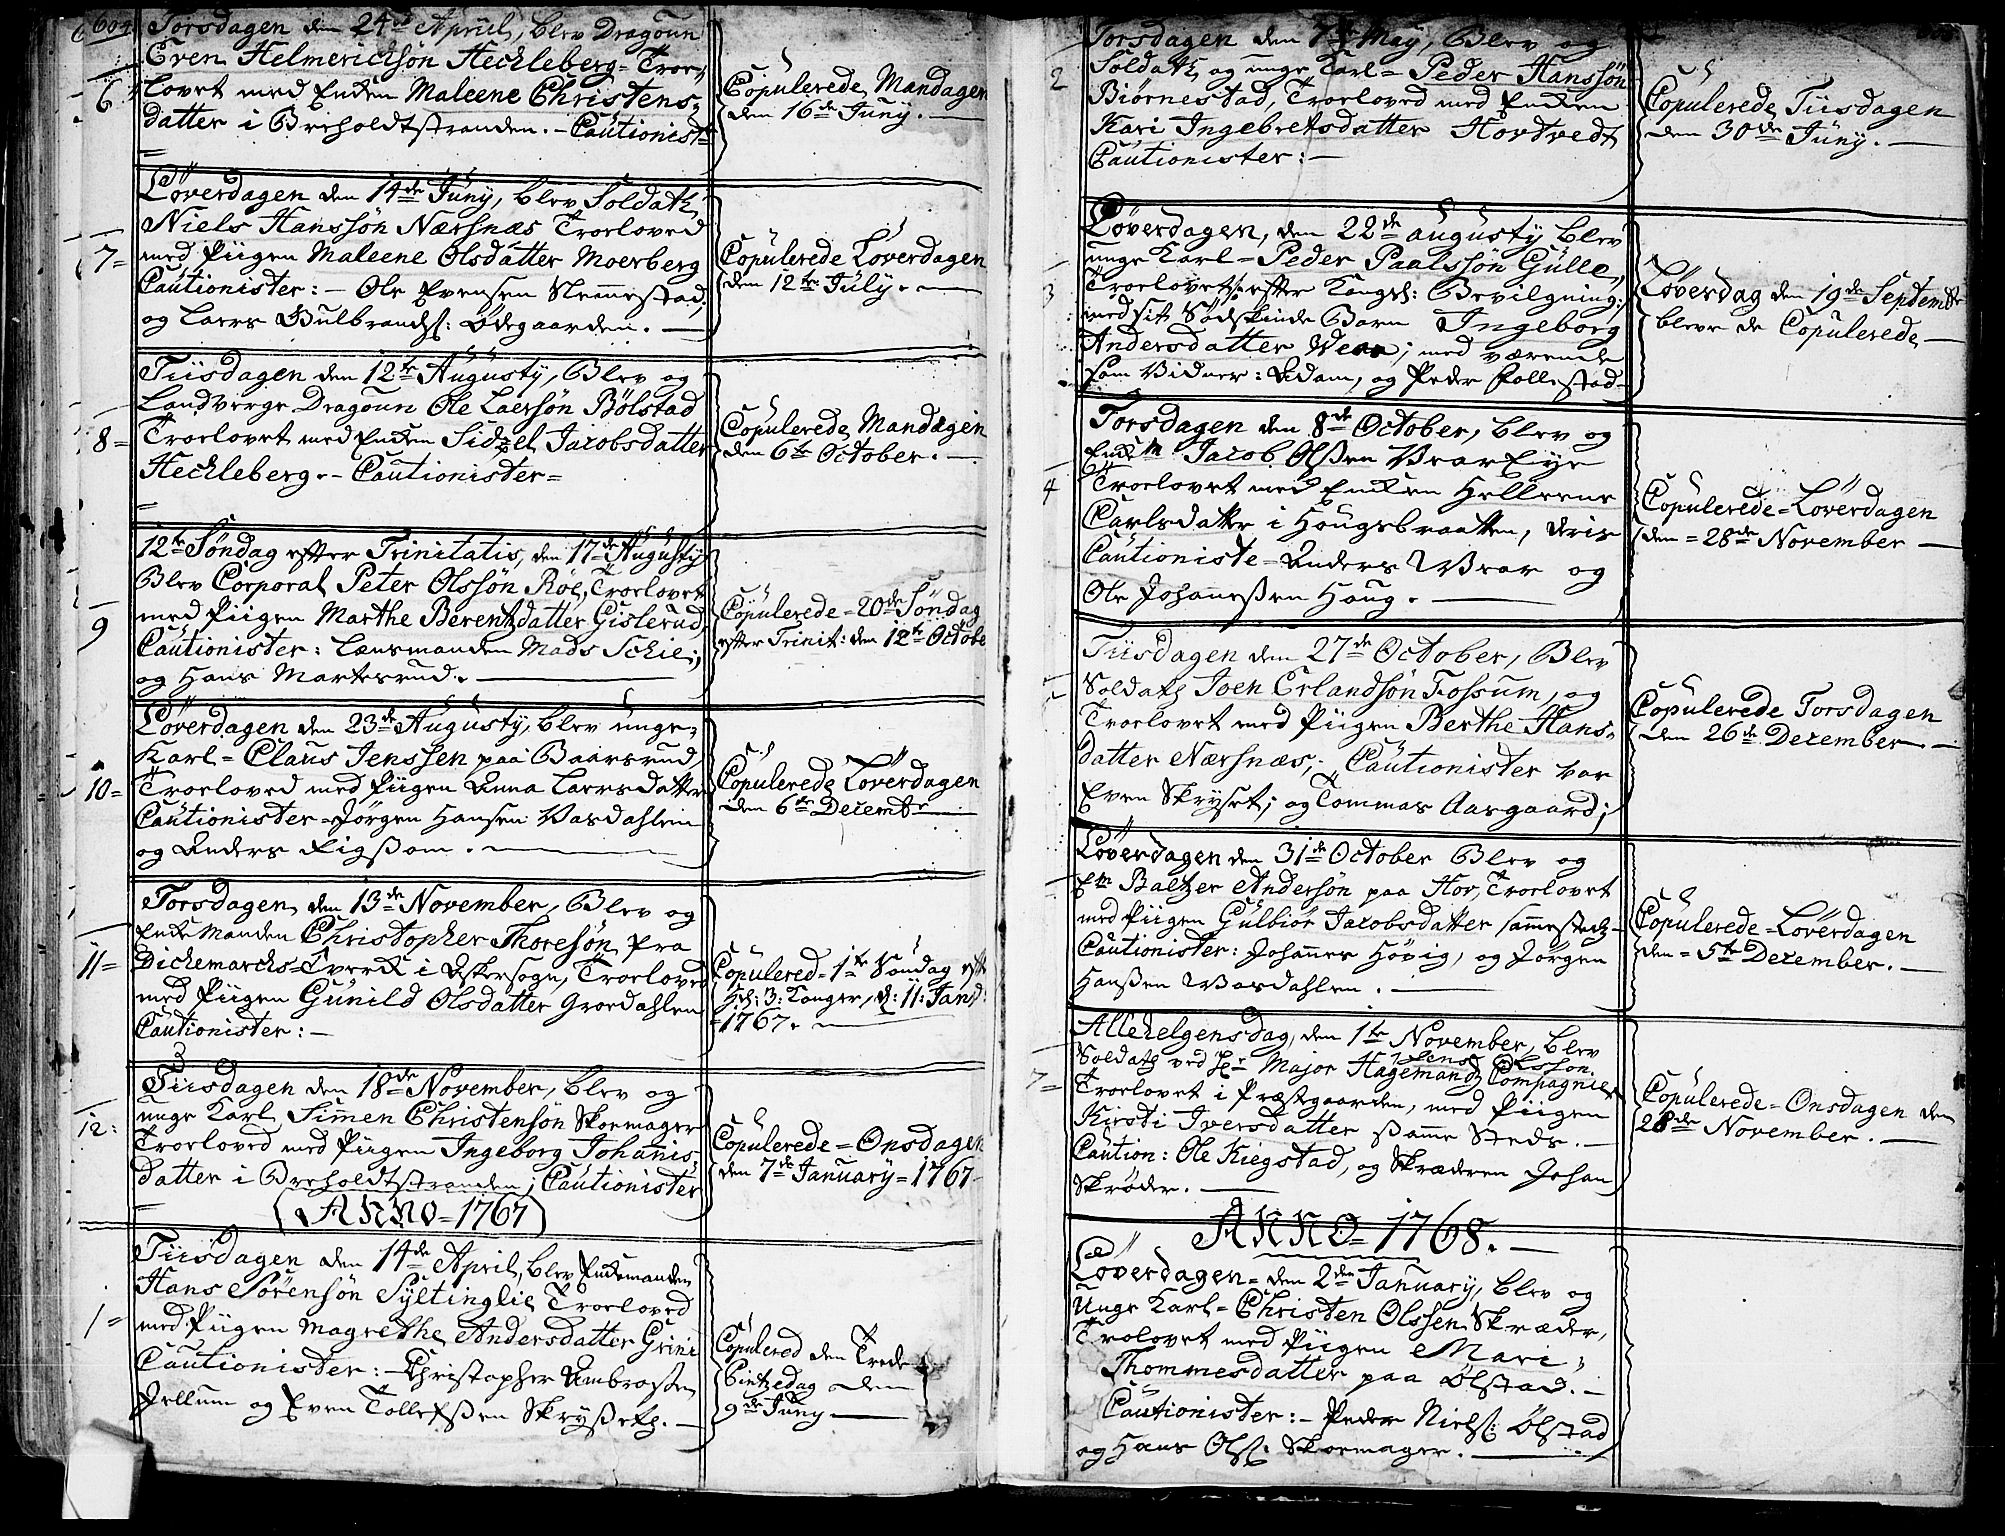 604
Torsdagen den 24de Apriil, blev Dragoun
Even Helmerichsön Heckleberg - Troe,
6
lovet med Enken Maleene Christens-
datter i Breholdtstranden. - Cautionist=
Copulerede Mandagen
den 16de Juny. -
Löverdagen den 14de Juny, blev Soldath
Niels Hanssön Nærsnæs Troeloved
7=
med Piigen Maleene Olsdatter Moerberg
Cautionister: - Ole Evensen Nemestad,
og Laers Gulbrands: Ödegaarden. -
Copulerede Löverdagen
den 12te July. -
Tiisdagen den 12te Augusty, Blev og
Landverge Dragoun Ole Laersön Bölstad
8=
Troelovet med Enken Sidzel Jacobsdatter
Heckleberg. - Cautionister=
Copulerede Mandagen
den 6te October. -
12te Söndag efter Trinitatis, den 17de Augusty
Blev Corporal Peter Olssön Roe, Troelovet
9
med Piigen Marthe Berentzdatter Gislerud,
Cautionister: Lænsmanden Mads Schie;
og Hans Martesrud. -
Copulerede - 20de Söndag
efter Trinit: den 12te Octobe
Löverdagen den 23de Augusty, blev unge-
Karl - Claus Jenssen paa Baarsrud,
10=
Troeloved med Piigen Anna Laersdatter
Cautionister - Jörgen Hansen Vasdahlen
og Anders -
Copulerede Löverdagen
den 6te Decemb
Torsdagen, den 13de November, Blev og
Enkemanden Christopher Thoresön fra
11=
Dichemarchs-Verck i Askersogn, Troeloved
med Piigen Gunild Olsdatter Groedahlen
Cautionister: -
Copulered - 1te Söndag eft
Hel: 3: Konger, d: 11: Jan
1767. -
Tiisdagen den 18de November, blev og
unge Karl Simen Christensön Skoemager
12:
Troeloved med Piigen Ingeborg Johanis-
datter i Breholdtstranden; Cautionister
Copulerede - Onsdagen
den 7de January = 1767
ANNO = 1767
Tiisdagen den 14de April, blev Enkemanden
Hans Sörensön Syltinglie Troeloved
1=
med Piigen Magrethe Andersdatter Grini
Cautionister: - Christopher Ambrosen
Jellum og Even Tollefsen Skrysset. -
Copulered den Trede
Pintzedag den
9de Juny -
Torsdagen den 7de May, Blev og
2
Soldath og unge Karl - Peder Hanssön
Biörnestad, Troeloved med Enken
Kari Ingebretsdatter Hovtvedt
Cautionister: -
Copulerede Tiisdagen
den 30de Juny. -
Löverdagen, den 22de Augusty blev
unge Karl - Peder Paalssön Gulle,
3
Troelovet efter Kongel: Bevilgning;
med sit Södskinde Barn Ingeborg
Andersdatter; med værende
som Vidner: Adam, og Peder Follestad -
Löverdag den 19de Septemb
bleve de Copulerede -
Torsdagen den 8de October, blev og
Enkem Jacob Olsen Braareye
4
Troelovet med Enken Helleene
Carlsdatter i Hougsbraatten, deris
Cautioniste - Anders Braar og
Ole Johannesen Houg. -
Copulerede - Löverdagen
den = 28de November -
Tiisdagen den 27de October, Blev
Soldath Joen Erlandsön Fossum, og
Troelovet med Piigen Berthe Hans-
datter Nærsnæs; Cautionister var
Even Skryset; og Tommas Aasgaard;
Copulerede Torsdagen
den 26de December -
Löverdagen den 31de October Blev og
Em Baltzer Andersön paa Hov, Troelovet
med Piigen Gulbiör Jacobsdatter sammesteds -
Cautionister: Johannes Hövig, og Jörgen
Hansen Vasdahlen. -
Copulerede - Löverdagen
den = 5te December. -
Allehelgensdag, den 1te November, blev
Jens Olsson
Soldath ved Hr Major Hagemands Compagnie
7=
Troelovet i Præstgaarden, med Piigen
Kirsti Iversdatter samme Steds. -
Caution: Ole Kiegstad, og Skræderen Johan
Skröder. -
Copulerede - Onsdagen den
28de November. -
ANNO = 1768. -
Löverdagen - den 2den January, blev og
Unge Karl - Christen Olssen Skræder,
Trolovet med Piigen Mari
Thommesdatter paa Ölstad. -
Cautionister: - Peder Niels: Ölstad
og Hans Ols: Skoemager. -